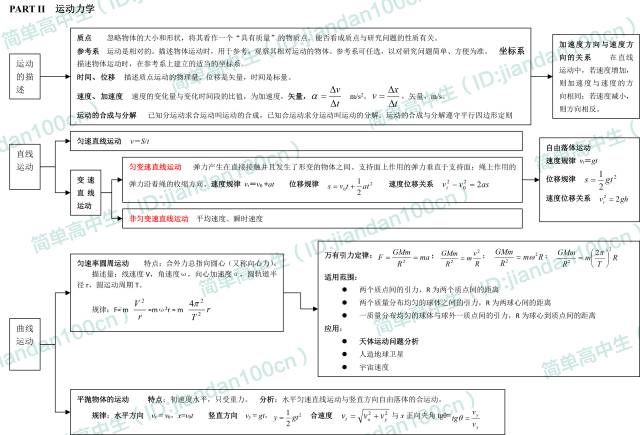 PART II 运动力学
运动
的描
述
质点 忽略物体的大小和形状，将其看作一个“具有质量”的物质点。能否看成质点与研究问题的性质有关。
参考系 运动是相对的。描述物体运动时，用于参考，观察其相对运动的物体。参考系可任选，以对研究问题简单、方便为准。 坐标系
描述物体运动时，在参考系上建立的适当的坐标系。
时间、位移 描述质点运动的物理量。位移是矢量，时间是标量。
速度、加速度 速度的变化量与变化时间段的比值，为加速度，矢量，α = Δv/Δt m/s²，v = Δx/Δt，矢量，m/s。
运动的合成与分解 已知分运动求合运动叫运动的合成，已知合运动求分运动叫运动的分解。运动的合成与分解遵守平行四边形定则
加速度方向与速度方
向的关系 在直线
运动中，若速度增加，
则加速度与速度的方
向相同；若速度减小，
则方向相反。
直线
运动
匀速直线运动 v＝S/t
变 速
直 线
运动
匀变速直线运动 弹力产生在直接接触并且发生了形变的物体之间。支持面上作用的弹力垂直于支持面；绳上作用的
弹力沿着绳的收缩方向。速度规律 vₜ=v₀+at 位移规律 s = v₀t + 1/2 at² 速度位移关系 vₜ² − v₀² = 2as
非匀变速直线运动 平均速度、瞬时速度
自由落体运动
速度规律 vₜ=gt
位移规律 s = 1/2 gt²
速度位移关系 vₜ² = 2gh
曲线
运动
匀速率圆周运动 特点：合外力总指向圆心（又称向心力）。
描述量：线速度 V，角速度ω，向心加速度α，圆轨道半
径 r，圆运动周期 T。
规律：F= m V²/r =mω²r= m 4π²/T² r
万有引力定律：F = GMm/R² = ma；GMm/R² = m v²/R；GMm/R² = mω²R；GMm/R² = m(2π/T)² R
适用范围：
● 两个质点间的引力，R 为两个质点间的距离
● 两个质量分布均匀的球体之间的引力，R 为两球心间的距离
● 一质量分布均匀的球体与球外一质点间的引力，R 为球心到质点间的距离
应用：
● 天体运动问题分析
● 人造地球卫星
● 宇宙速度
平抛物体的运动 特点：初速度水平，只受重力。 分析：水平匀速直线运动与竖直方向自由落体的合运动。
规律：水平方向 vₓ = v₀，x=v₀t 竖直方向 vᵧ = gt，y = 1/2 gt² 合速度 vₜ = √(vₓ² + vᵧ²) 与 x 正向夹角 tgθ= tgθ = vᵧ/vₓ
简单高中生（ID:jiandan100cn）